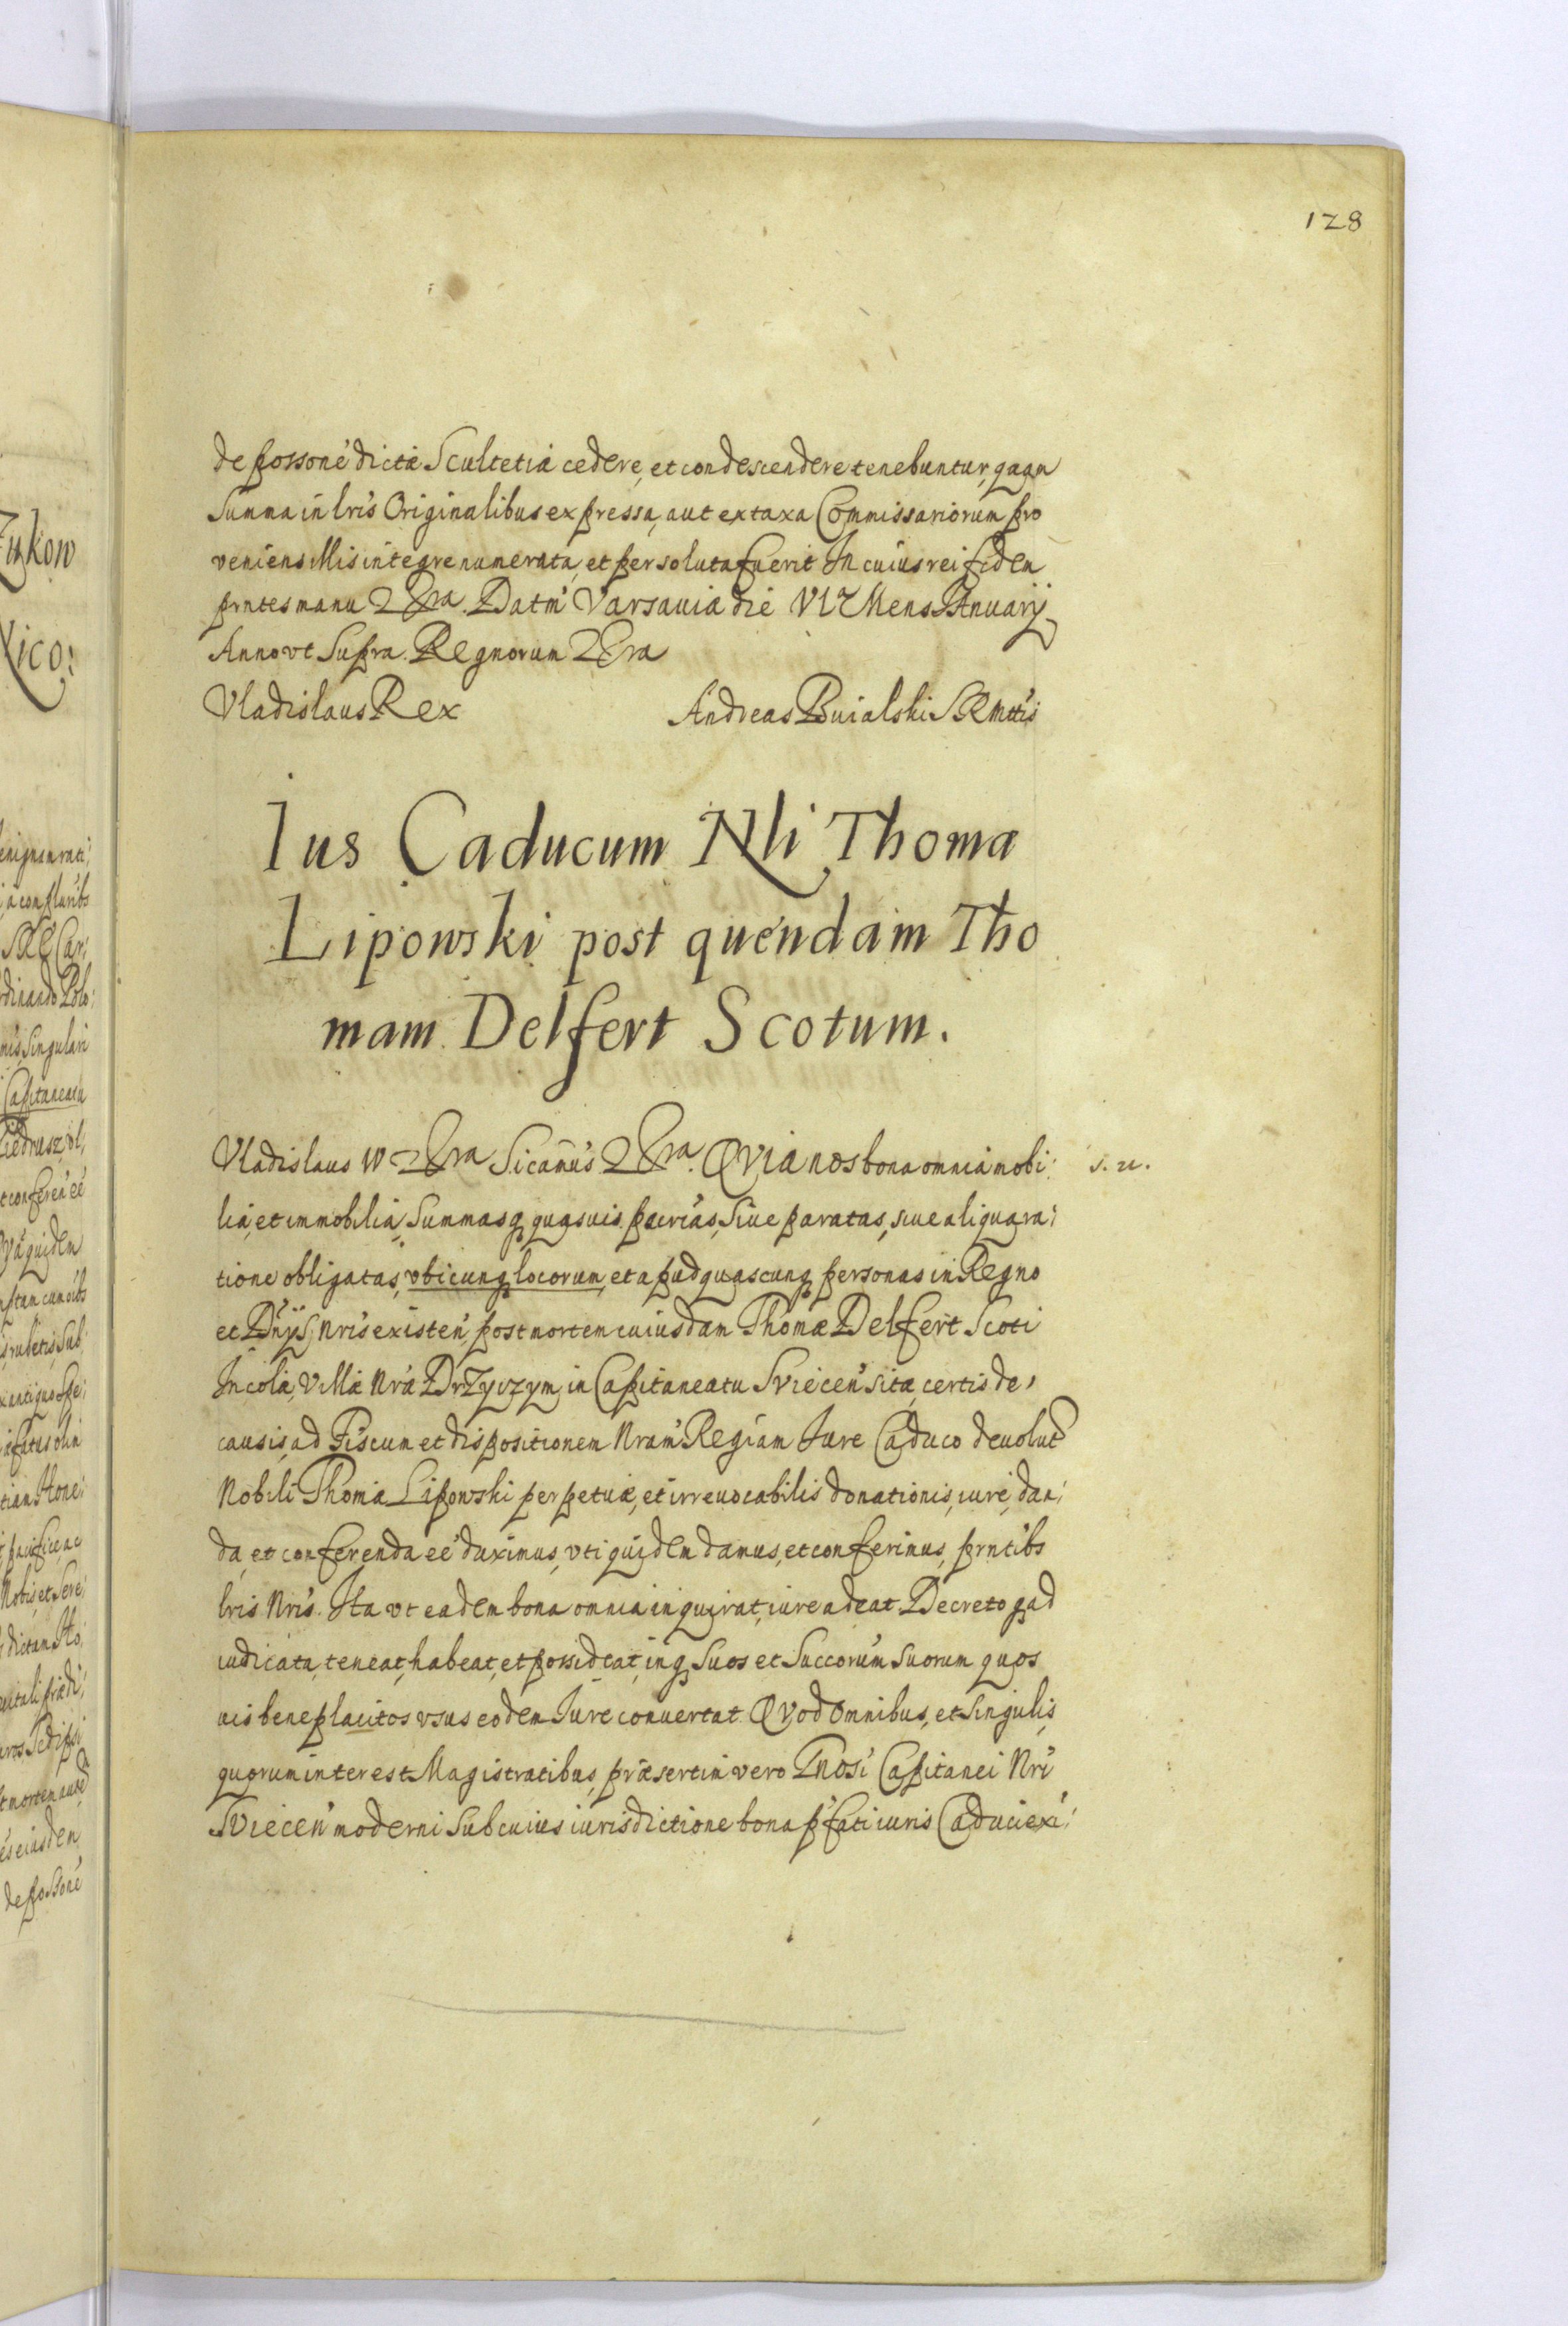 128
de possoné dictæ Scultetiæ cedere, et condescendere tenebuntur, qaqn
Summa in lris Originalibus expressa, aut ex taxa Commissariorum pro
veniens illis integre numerata, et persoluta fuerit In cuius rei fidem
prntes manu Datm Varsauiæ die Mens Ianuarij
Anno vt Supra. Regnorum
Vladislaus Rex Andreas Buialski SRMttis
Ius Caducum Nli Thomæ
Lipowski post quendam Tho
mam Delfert Scotum.
Vladislaus Sicamus QVIA nos bona omnia mobi:
s. n.
lia, et immobilia, Summasq quasuis pecrias, Siue paratas, siue aliqua ra:
tione obligatas, vbicunq locorum, et apud quascunq personas in Regno
et Dnijs nris existen, post mortem cuiusdam Thomæ Delfert Scoti
Incolæ, Villæ Nræ Drzyczym, in Capitaneatu Sviecen sitæ, certis de,
causis, ad Fiscum et dispositionem Nram Regiam Iure Caduco deuolut
Nobili Thomæ Lipowski perpetuæ, et irreuocabilis donationis, iure, dan:
da, et conferenda eé duximus, vti quidem damus, et conferimus, prntibs
lris Nris. Ita vt eadem bona omnia inquirat, iure adeat Decreto q ad
iudicata, teneat, habeat, et possideat, inq Suos et Succorum Suorum quos
uis beneplacitos vsus eodem Iure conuertat. QVod Omnibus, et Singulis,
quorum interest Magistratibus, præsertim vero Gnosi Capitanei Nri
Sviecen moderni Sub cuius iurisdictione bona pfati iuris Caduci exi: